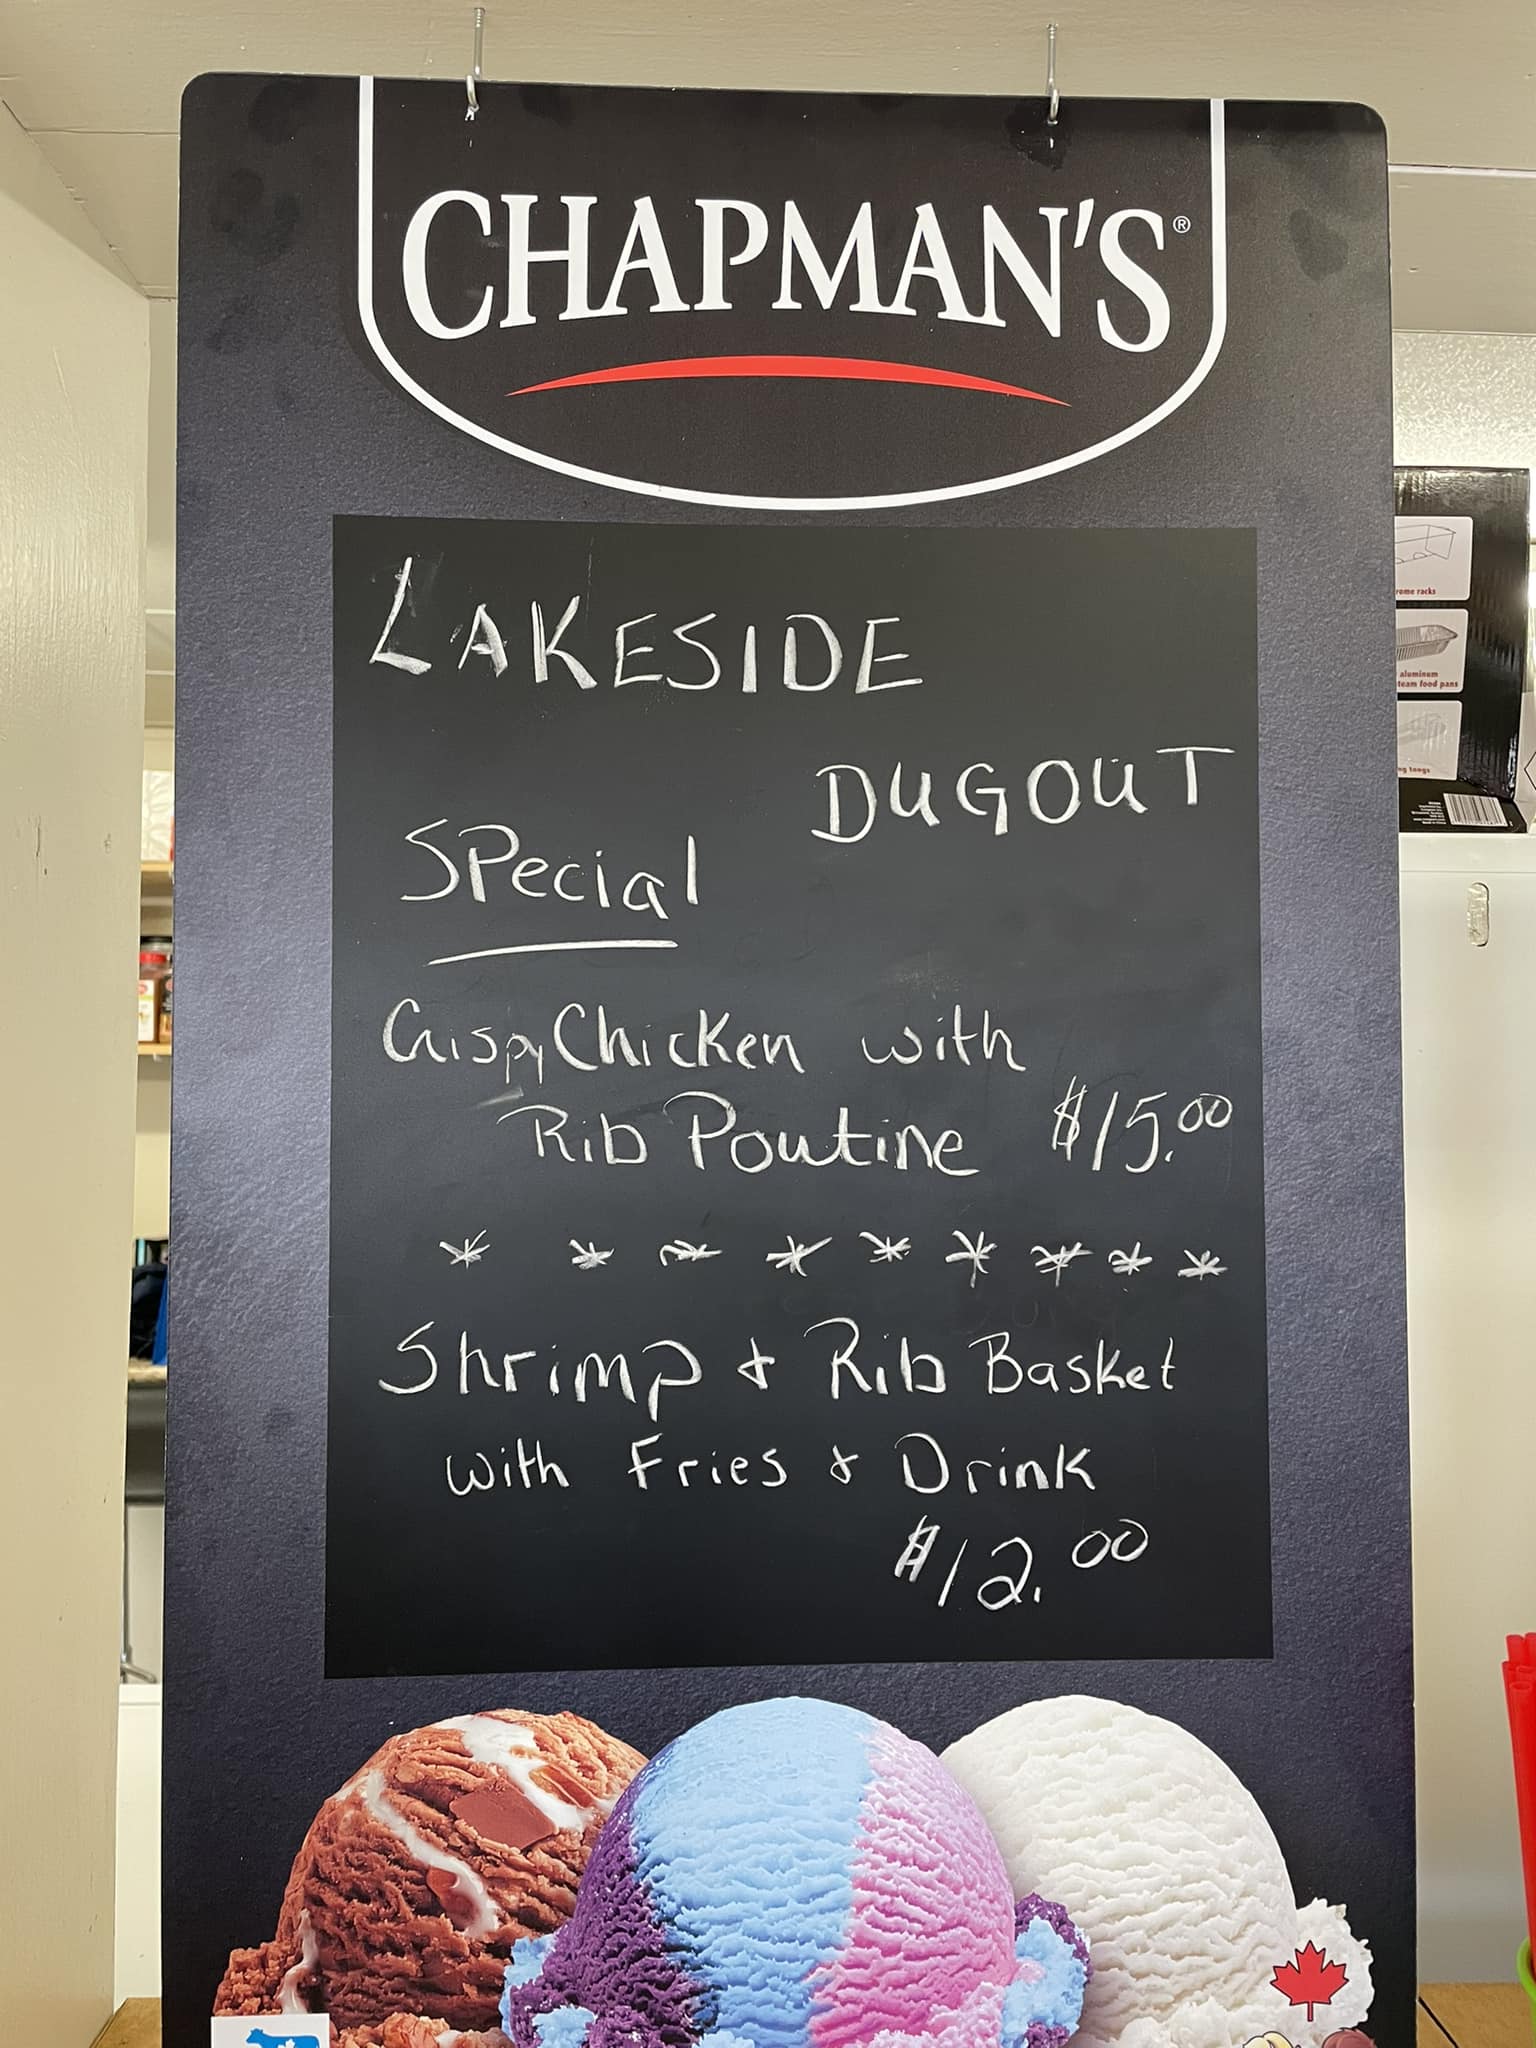 CHAPMAN'S®
LAKESIDE
DUGOUT
Special
Crispy Chicken with
Rib Poutine $15.00
* * * * * * * * *
Shrimp & Rib Basket
with Fries & Drink
$12.00
rome racks
aluminum
team food pans
ng tongs